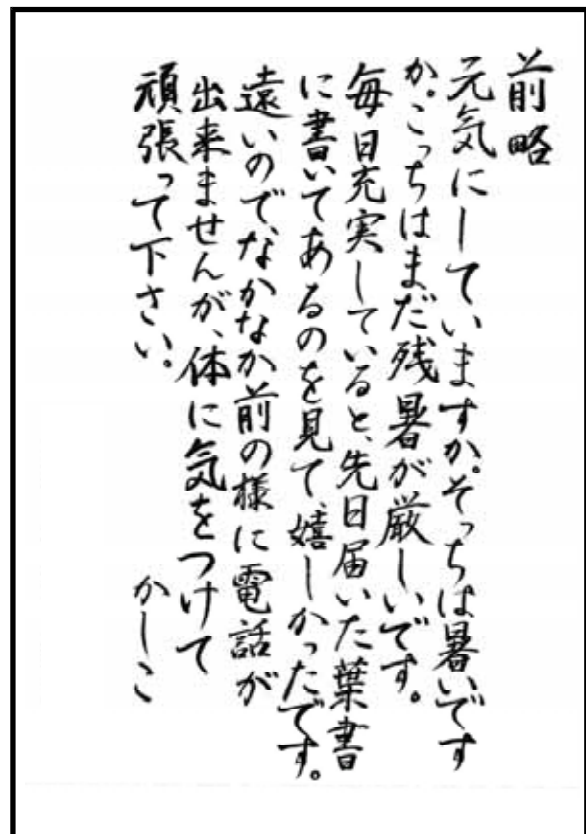 前略
元気にしていますか。そっちは暑いです
か。こっちはまだ残暑が厳しいです。
毎日充実していると、先日届いた葉書
に書いてあるのを見て、嬉しかったです。
遠いので、なかなか前の様に電話が
出来ませんが、体に気をつけて
頑張って下さい。
かしこ